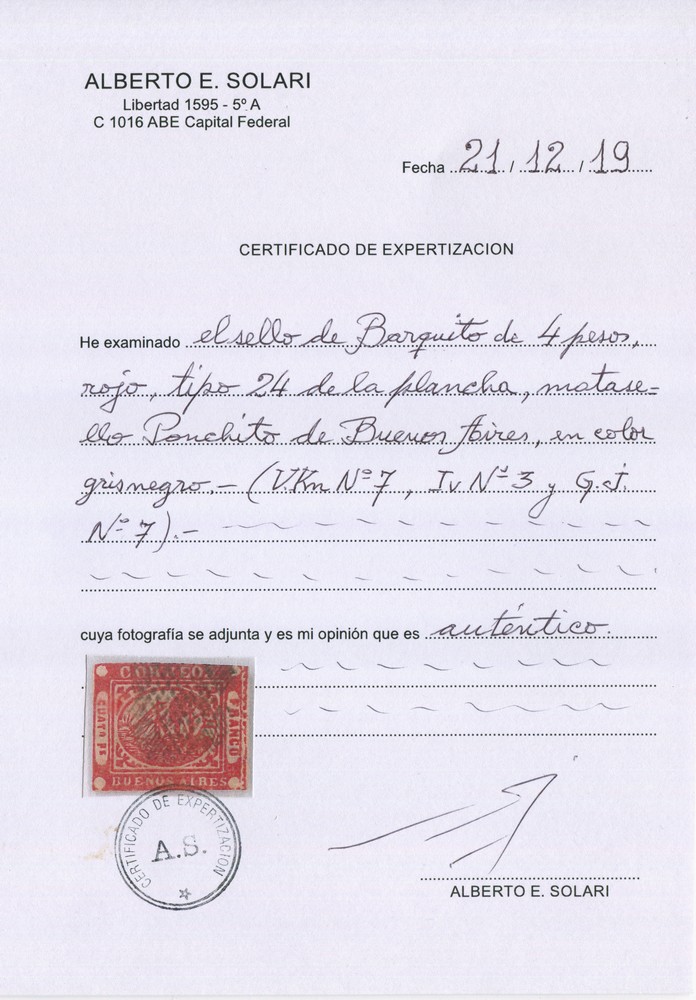 ALBERTO E. SOLARI
Libertad 1595 - 5º A
C 1016 ABE Capital Federal
Fecha 21 / 12 / 19
CERTIFICADO DE EXPERTIZACION
He examinado el sello de Barquito de 4 pesos,
rojo, tipo 24 de la plancha, matase=
llo Ponchito de Buenos Aires, en color
grisnegro.- (VKn Nº 7, Iv Nº 3 y G.J.
Nº 7).-
cuya fotografía se adjunta y es mi opinión que es auténtico.
CORREOS
CUATO Ps
FRANCO
BUENOS AIRES
CERTIFICADO DE EXPERTIZACION
A.S.
ALBERTO E. SOLARI